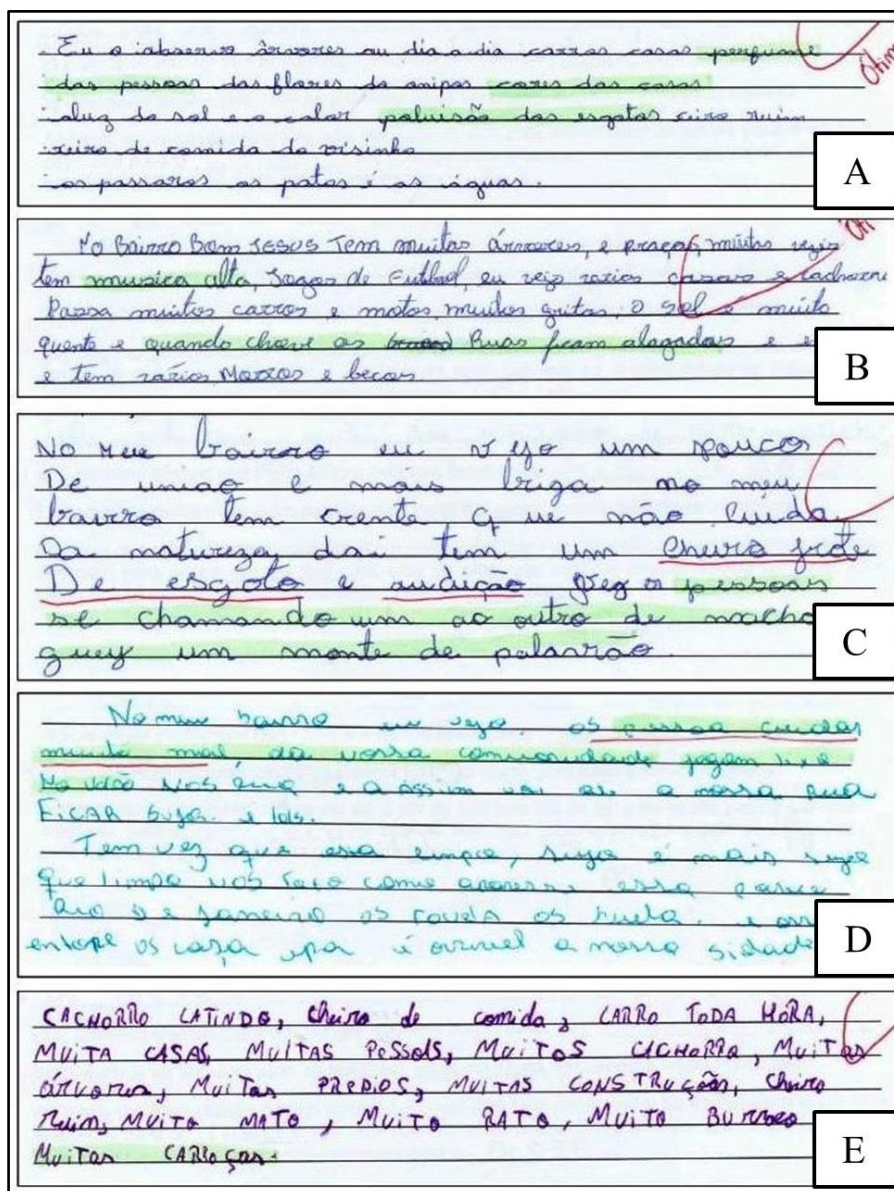 Eu o observo árvores au dia a dia carros casas perfume
das pessoas das flores da anipas cores das casas
aluz do sol e o calor poluisão das esgotos ruim
xeiro de comida do visinho
os passaros os patos é as águas.
Ótimo
A
No Bairro Bom JESUS Tem muitas árvores, e praças, muitas vezes
tem musica alta, Jogos de Futibol, eu vejo varios casas e cachorro
Passa muitos carros e motos, muitos gritos, o sol é muito
quente e quando chove as Ruas ficam alagadas e e
e tem varios Morros e becos
B
No Meu bairro eu vejo um pouco
De uniao e mais briga no meu
bairro tem crente que não cuida
Da natureza, dai tem um cheiro forte
De esgoto e audição pessoas
se chamando um ao outro de macho
guey um monte de palavrão.
C
No meu bairro eu vejo. os pessoa cuidar
muito mal, da nossa comonidade jogam lixo
No NOS Rua e a assim vai a nossa Rua
FICAR suja.
Tem vez que essa limpa, suja é mais suja
que limpa como essa parece
Rio De janeiro os
entope os casa a nossa sidade
D
CACHORRO LATINDO, cheiro de comida, CARRO TODA HORA,
MUITA CASAS, MUITAS PESSOAS, MUITOS CACHORRO, MUITAS
árvores, MUITAS PREDIOS, MUITAS CONSTRUçãos, cheiro
Ruim, MUITO MATO, MUITO RATO, MUITO BURRACO
MUITAS CARROças.
E